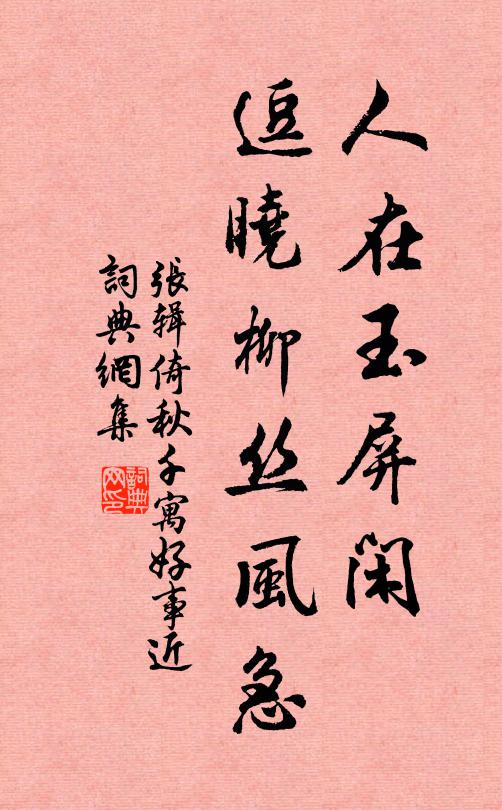 人在玉屏闲
逗曉柳丝風急
張辑倚秋千寓好事近
詞典網集
詞典網印